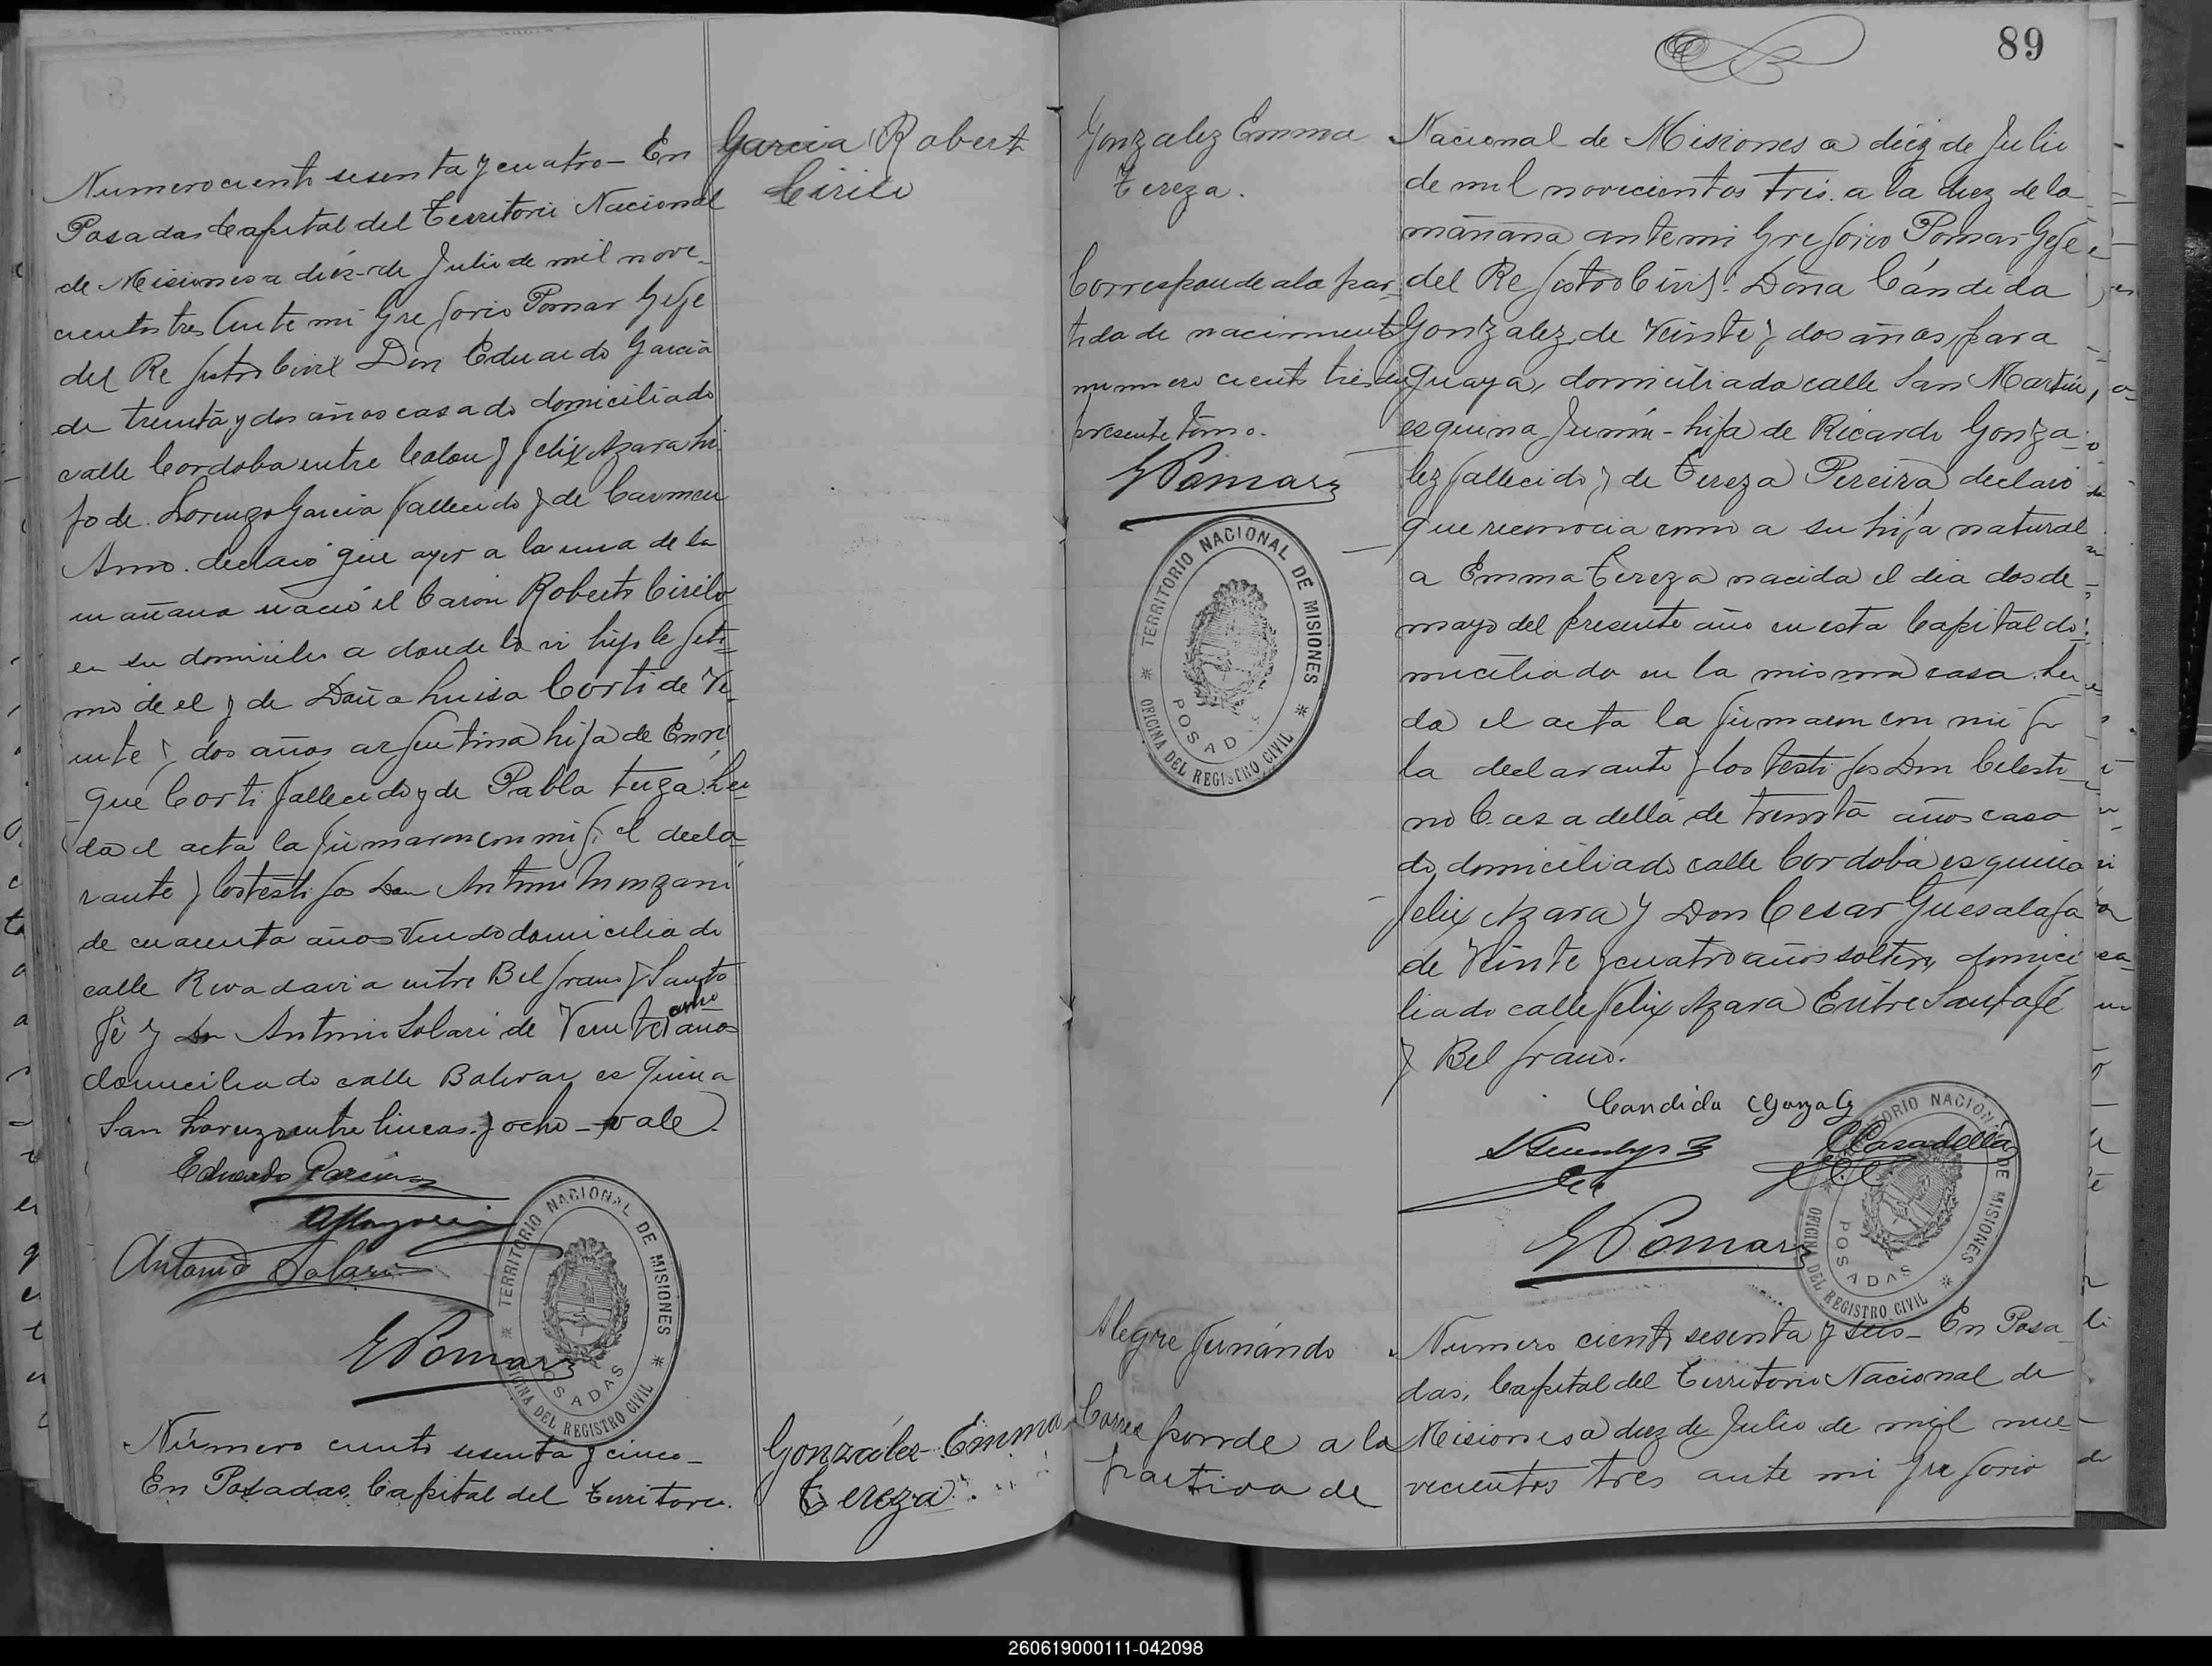 Numero ciento sesenta y cuatro - En
Posadas Capital del Territorio Nacional
de Misiones a diez de Julio de mil nove-
cientos tres Ante mi Gregorio Pomar Gefe
del Registro Civil Don Eduardo Garcia
de treinta y dos años casado domiciliado
calle Cordoba entre Colon y Felix Azara hi
jo de Lorenzo Garcia fallecido y de Carmen
Amo. declaró que ayer a la una de la
mañana nació el baron Roberto Cirilo
en su domicilio a donde lo vi hijo legiti-
mo de el y de Doña Luisa Corti de Ve-
inte y dos años argentina hija de Enri
que Corti fallecido y de Pabla Lei-
da el acta la firmaron conmigo el decla-
rante y los testigos Don Antonio
de cuarenta años Viudo domiciliado
calle Rivadavia entre Belgrano y Santa
Fé y Don Antonio Solari de Veinte años
domiciliado calle Bolivar esquina
San Lorenzo entre lineas. y ocho - vale.
Eduardo Garcia
Antonio Solari
G Pomar
TERRITORIO NACIONAL DE MISIONES
OFICINA DEL REGISTRO CIVIL
POSADAS
Garcia Robert
Cirilo
Número ciento sesenta y cinco -
En Posadas Capital del Territorio
González Emma
Tereza.
89
Gonzalez Emma
Tereza.
Corresponde a la par-
tida de nacimiento
numero ciento tres del
presente tomo.
G Pomar
TERRITORIO NACIONAL DE MISIONES
POSAD
OFICINA DEL REGISTRO CIVIL
Nacional de Misiones a diez de Julio
de mil novecientos tres. a la diez de la
mañana ante mi Gregorio Pomar Gefe
del Registro Civil: Doña Cándida
Gonzalez de Veinte y dos años, para
guaya, domiciliada calle San Martin,
esquina Junin - hija de Ricardo Gonza-
lez fallecido y de Tereza Pereira declaró
que reconocia como a su hija natural
a Emma Tereza nacida el dia dos de
mayo del presente año en esta Capital do-
miciliada en la misma casa. Lei-
da el acta la firmaron conmigo
la declarante y los testigos Don Celesti-
no Casadella de treinta años casa
do, domiciliado calle Cordoba esquina
Felix Azara y Don Cesar Guesalaga
de Veinte y cuatro años soltero, domici
liado calle Felix Azara Entre Santa Fé
y Belgrano.
Candida Gonzalez
C Casadella
G Pomar
TERRITORIO NACIONAL DE MISIONES
POSADAS
OFICINA DEL REGISTRO CIVIL
Alegre Fernándo
Corres
ponde a la
partida de
Numero ciento sesenta y seis - En Posa-
das, Capital del Territorio Nacional de
Misiones a diez de Julio de mil nue-
vecientos tres ante mi Gregorio
260619000111-042098